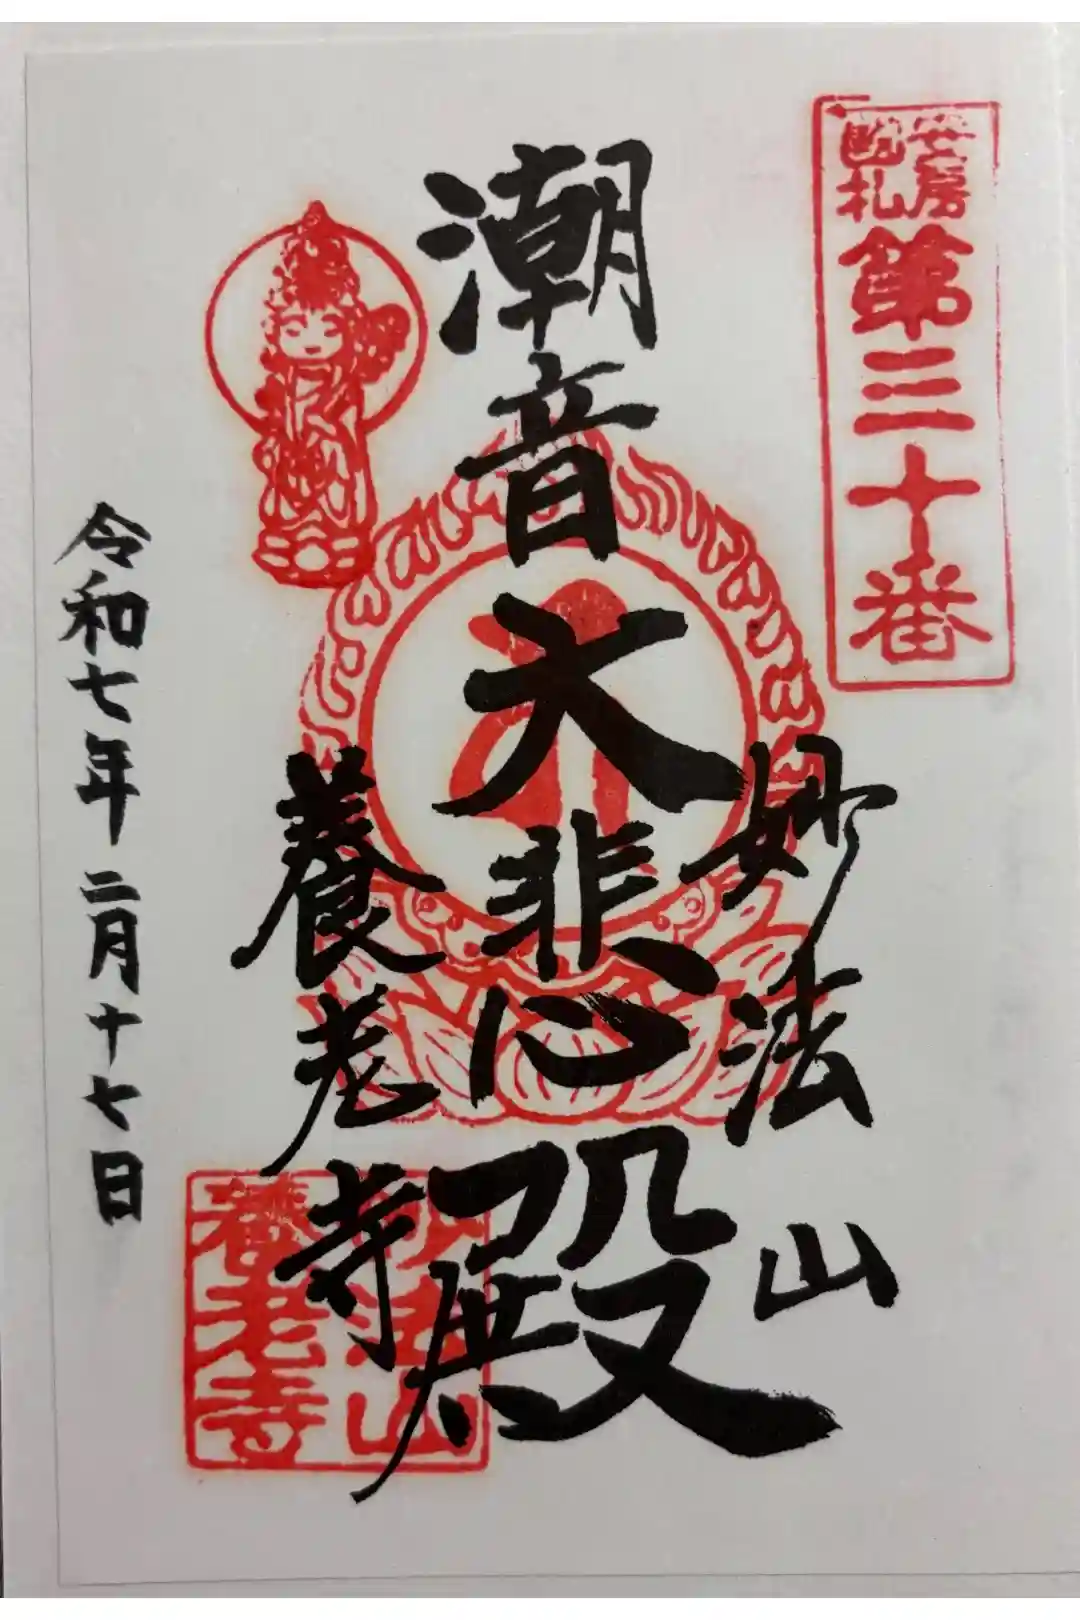 安房
札
第三十番
潮音大悲殿
妙法山
養老寺
令和七年二月十七日
妙法山
養老寺